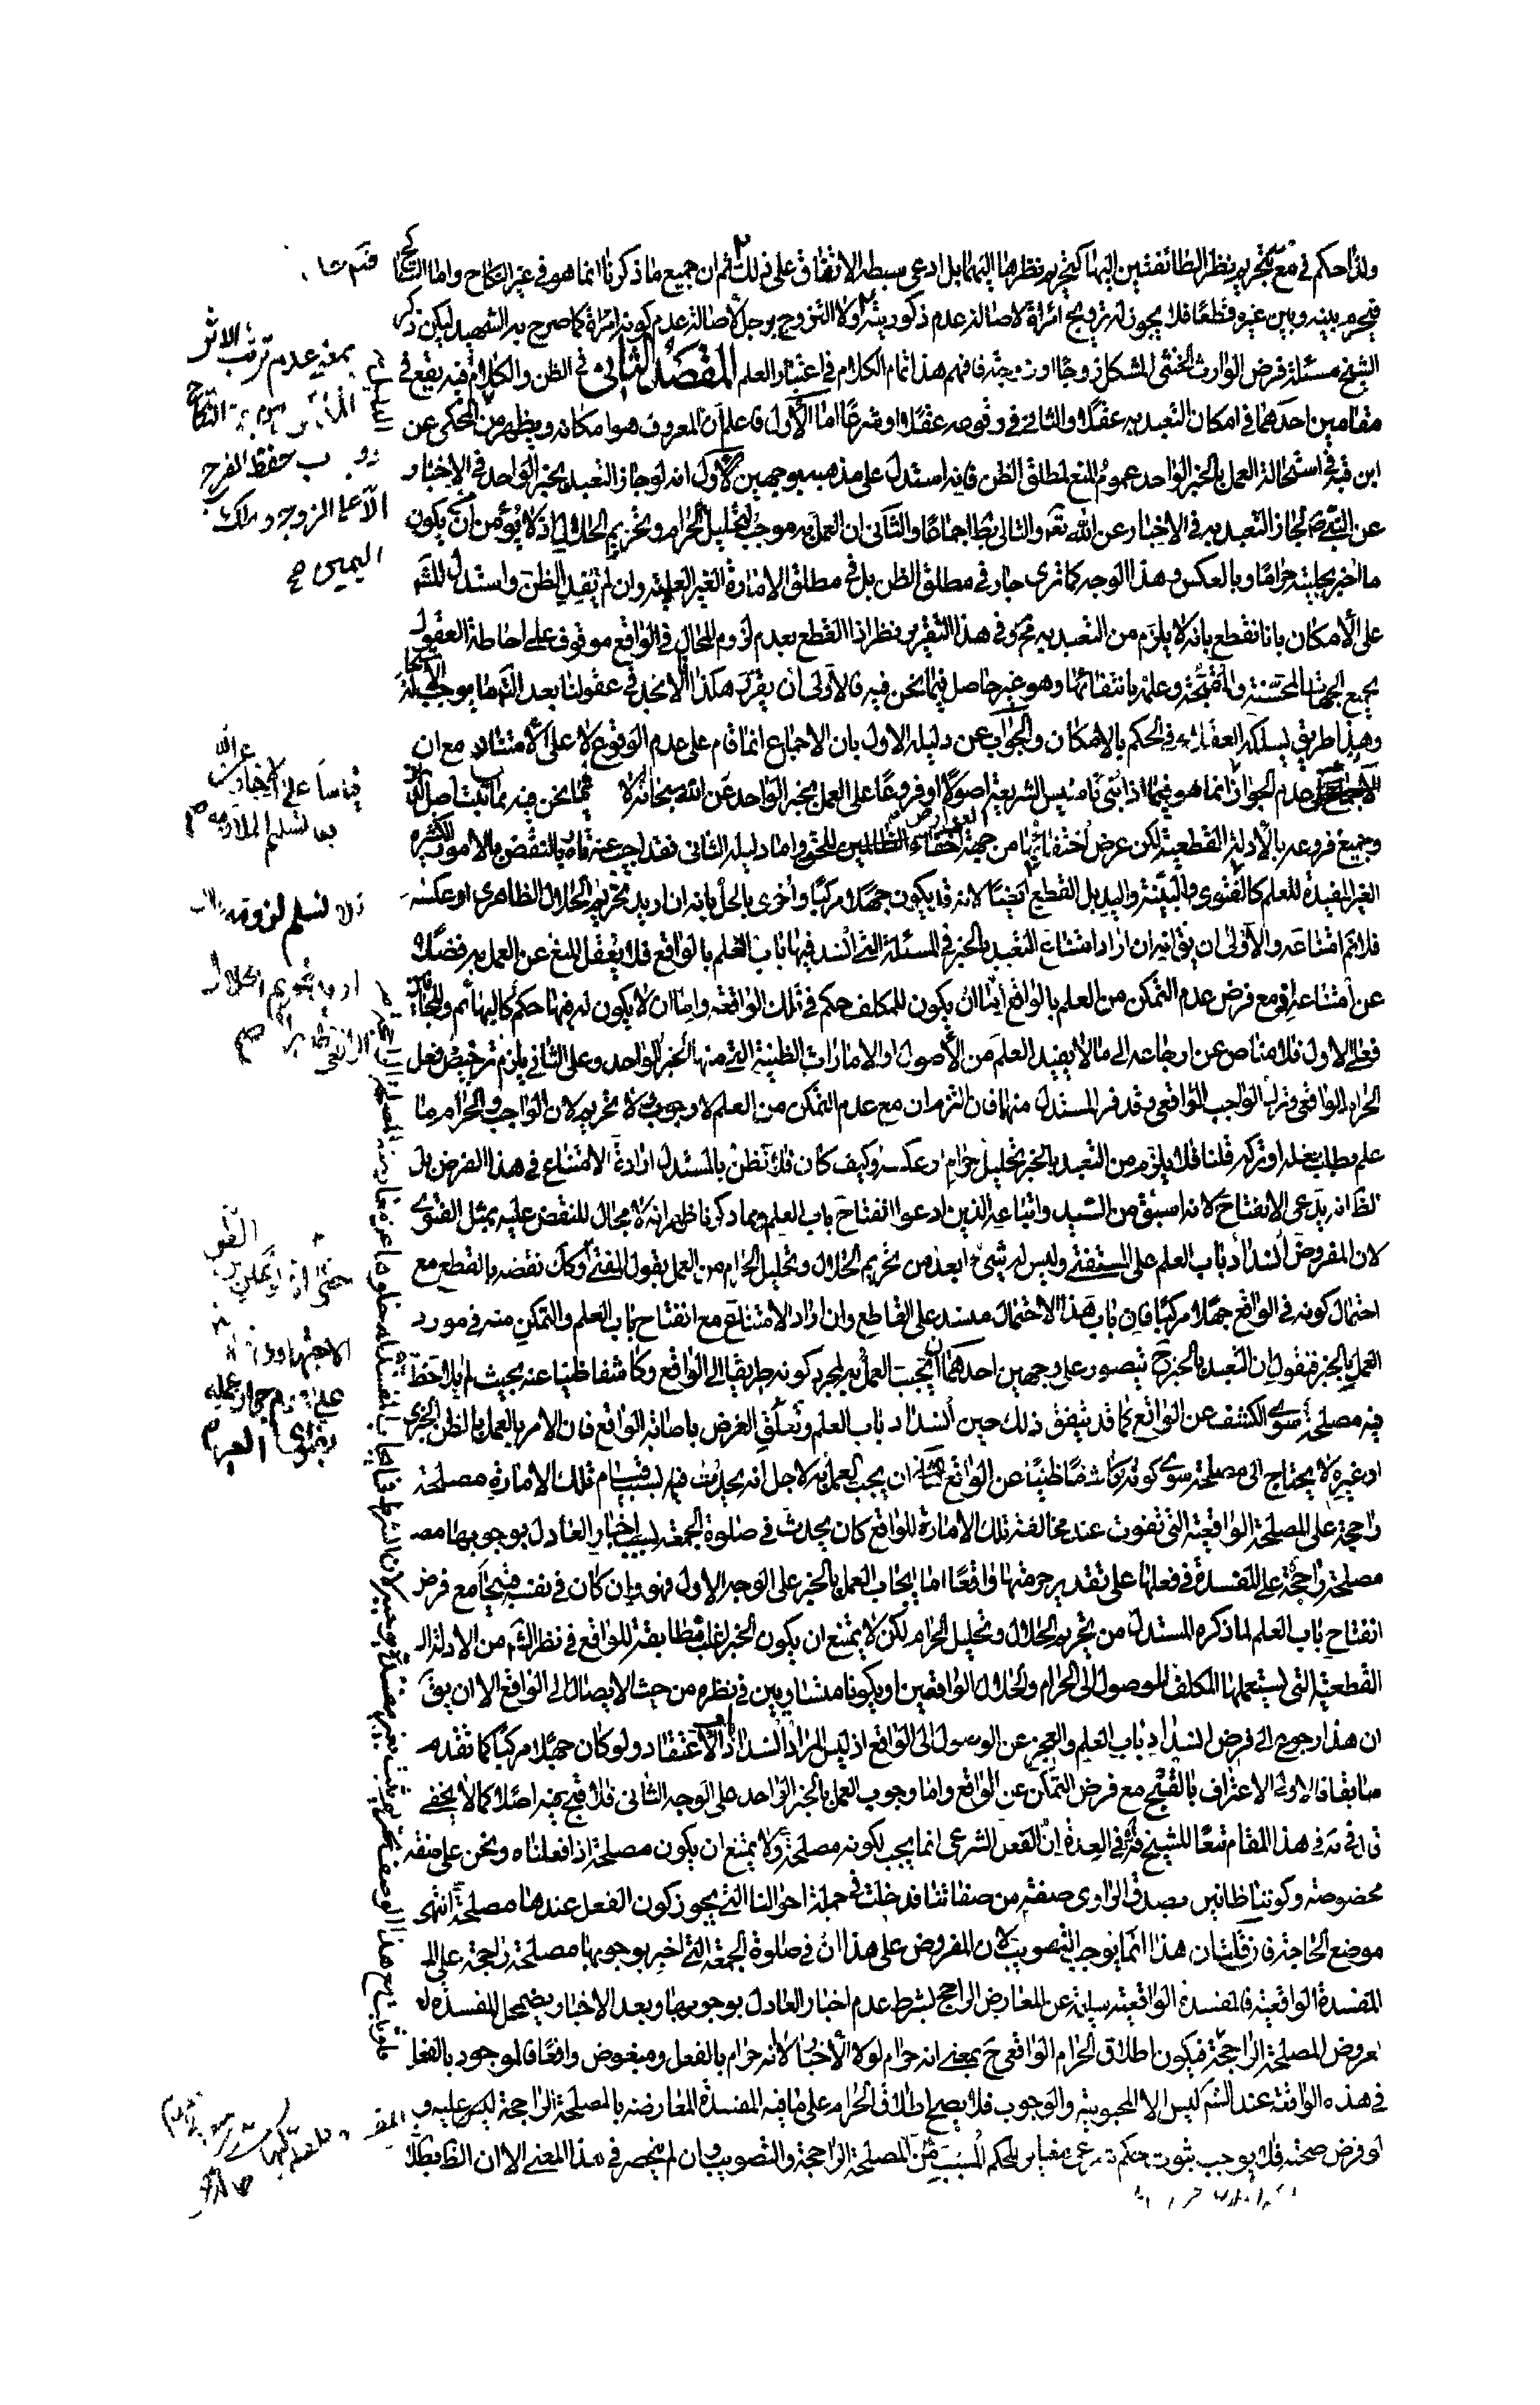 ولذا حكم في مع بتحريم نظر الطائفتين اليها كتحريم نظرها اليهما بل ادعى سبطه الاتفاق على ذلك ثم ان جميع ما ذكرنا انما هو في غير النكاح واما التناكح
فيحرم بينه وبين غيره قطعا فلا يجوز له تزويج امراة لاصالة عدم ذكوريته ولا التزوج برجل لاصالة عدم كونه امراة كما صرح به الشهيد لكن ذكر
الشيخ مسئلة فرض الوارث الخنثى المشكل زوجا او زوجة فافهم هذا تمام الكلام في اعتبار العلم المقصد الثاني في الظن والكلام فيه يقع في
مقامين احدهما في امكان التعبد به عقلا والثاني في وقوعه عقلا او شرعا اما الاول فاعلم ان المعروف هو امكانه ويظهر من المحكى عن
ابن قبة في استحالة العمل بالخبر الواحد عموم المنع لمطلق الظن فانه استدل على مذهبه بوجهين الاول انه لو جاز التعبد بخبر الواحد في الاخبار
عن النبي ص لجاز التعبد به في الاخبار عن الله تع والتالى بط اجماعا والثانى ان العمل به موجب لتحليل الحرام وتحريم الحلال اذ لا يؤمن ان يكون
ما اخبر بحليته حراما وبالعكس وهذا الوجه كما ترى جار في مطلق الظن بل في مطلق الامارة الغير العلمية وان لم يفد الظن واستدل المشه
على الامكان بانا نقطع بانه لا يلزم من التعبد به مح وفي هذا التقرير نظر اذ القطع بعدم لزوم المحال في الواقع موقوف على احاطة العقول
بجميع الجهات المحسنة والمقبحة وعلمه بانتفائها وهو غير حاصل فيما نحن فيه فالاولى ان يقرر هكذا انا لا نجد في عقولنا بعد التامل ما يوجب الاستحالة
وهذا طريق يسلكه العقلاء في الحكم بالامكان والجواب عن دليله الاول بان الاجماع انما قام على عدم الوقوع لا على الامتناع مع ان
عدم الجواز انما هو فيما اذا بنى تاسيس الشريعة اصولا او فروعا على العمل بخبر الواحد عن الله سبحانه لا فيما نحن فيه مما ثبت اصل الدين
وجميع فروعه بالادلة القطعية لكن عرض اختفائها من جهة اخفاء الظالمين للحق واما دليله الثانى فقد اجيب عنه تارة بالنقض بالامور الكثيرة
الغير المفيدة للعلم كالفتوى والبينة واليد بل القطع ايضا لانه قد يكون جهلا مركبا واخرى بالحل بانه ان اريد تحريم الحلال الظاهرى او عكسه
فلا نم امتناعه والاولى ان يق انه ان اراد امتناع التعبد بالخبر في المسئلة التي انسد فيها باب العلم بالواقع فلا يعقل المنع عن العمل به فضلا
عن امتناعه اذ مع فرض عدم التمكن من العلم بالواقع اما ان يكون للمكلف حكم في تلك الواقعة واما ان لا يكون له فيها حكم كالبهائم والمجانين
فعلى الاول فلا مناص عن ارجاعه الى ما لا يفيد العلم من الاصول او الامارات الظنية التي منها الخبر الواحد وعلى الثاني يلزم ترخيص فعل
الحرام الواقعي وترك الواجب الواقعي وقد فر المستدل منهما فان التزم ان مع عدم التمكن من العلم لا وجوب ولا تحريم لان الواجب والحرام ما
علم بطلب فعله او تركه قلنا فلا يلزم من التعبد بالخبر تحليل حرام او عكسه وكيف كان فلا نظن بالمستدل ارادة الامتناع في هذا الفرض بل
الظ انه يدعى الانفتاح لانه اسبق من السيد واتباعه الذين ادعوا انفتاح باب العلم ومما ذكرنا ظهر انه لا مجال للنقض عليه بمثل الفتوى
لان المفروض انسداد باب العلم على المستفتي وليس له شيء ابعد من تحريم الحلال وتحليل الحرام من العمل بقول المفتي وكك نقضه بالقطع مع
احتمال كونه في الواقع جهلا مركبا فان باب هذا الاحتمال منسد على القاطع وان اراد الامتناع مع انفتاح باب العلم والتمكن منه في مورد
العمل بالخبر فنقول ان التعبد بالخبر ح يتصور على وجهين احدهما ان يجب العمل به لمجرد كونه طريقا الى الواقع وكاشفا ظنيا عنه بحيث لم يلاحظ
فيه مصلحة سوى الكشف عن الواقع كما قد يتفق ذلك حين انسداد باب العلم وتعلق الغرض باصابة الواقع فان الامر بالعمل بالظن الخبرى
او غيره لا يحتاج الى مصلحة سوى كونه كاشفا ظنيا عن الواقع الثانى ان يجب العمل به لاجل انه يحدث فيه بسبب قيام تلك الامارة مصلحة
راجحة على المصلحة الواقعية التي تفوت عند مخالفة تلك الامارة للواقع كان يحدث في صلوة الجمعة بسبب اخبار العادل بوجوبها مص
مصلحة راجحة على المفسدة في فعلها على تقدير حرمتها واقعا اما ايجاب العمل بالخبر على الوجه الاول فهو وان كان في نفسه قبيحا مع فرض
انفتاح باب العلم لما ذكره المستدل من تحريم الحلال وتحليل الحرام لكن لا يمتنع ان يكون الخبر اغلب مطابقة للواقع في نظر الشه من الادلة ال
القطعية التي يستعملها المكلف للوصول الى الحرام والحلال الواقعيين او يكونا متساويين في نظره من حيث الايصال الى الواقع الا ان يق
ان هذا رجوع الى فرض انسداد باب العلم والعجز عن الوصول الى الواقع اذ ليس المراد انسداد باب الاعتقاد ولو كان جهلا مركبا كما تقدم
سابقا فالاولى الاعتراف بالقبح مع فرض التمكن عن الواقع واما وجوب العمل بالخبر الواحد على الوجه الثانى فلا قبح فيه اصلا كما لا يخفى
في هذا المقام تبعا للشيخ قه في العدة ان الفعل الشرعى انما يجب لكونه مصلحة ولا يمتنع ان يكون مصلحة اذا فعلناه ونحن على صفة
مخصوصة وكوننا ظانين بصدق الراوى صفة من صفاتنا فدخلت في جملة احوالنا التي يجوز كون الفعل عندها مصلحة انتهى
موضع الحاجة فان قلت ان هذا انما يوجب التصويب لان المفروض على هذا ان في صلوة الجمعة التي اخبر بوجوبها مصلحة راجحة على ال
المفسدة الواقعية فالمفسدة الواقعية سليمة عن المعارض الراجح بشرط عدم اخبار العادل بوجوبها وبعد الاخبار يضمحل المفسدة ل
لعروض المصلحة الراجحة فيكون اطلاق الحرام الواقعي ح بمعنى انه حرام لولا الاخبار لا انه حرام بالفعل ومبغوض واقعا فالموجود بالفعل
في هذه الواقعة عند الشه ليس الا المحبوبية والوجوب فلا يصح اطلاق الحرام على ما فيه المفسدة المعارضة بالمصلحة الراجحة ليس عليه و
لو فرض صحته فلا يوجب ثبوت حكم شرعى مغاير للحكم المسبب من المصلحة الراجحة والتصويب وان لم ينحصر في هذا المعنى الا ان الظ بطلا
بمعنى عدم ترتب الاثر
حفظ الفرج
الا عن الزوجة وملك
اليمين صح
قياسا على الاخبار عن الله
بعد تسليم الملازمة صح
لا نسلم لزومه
اريد تحريم الحلال